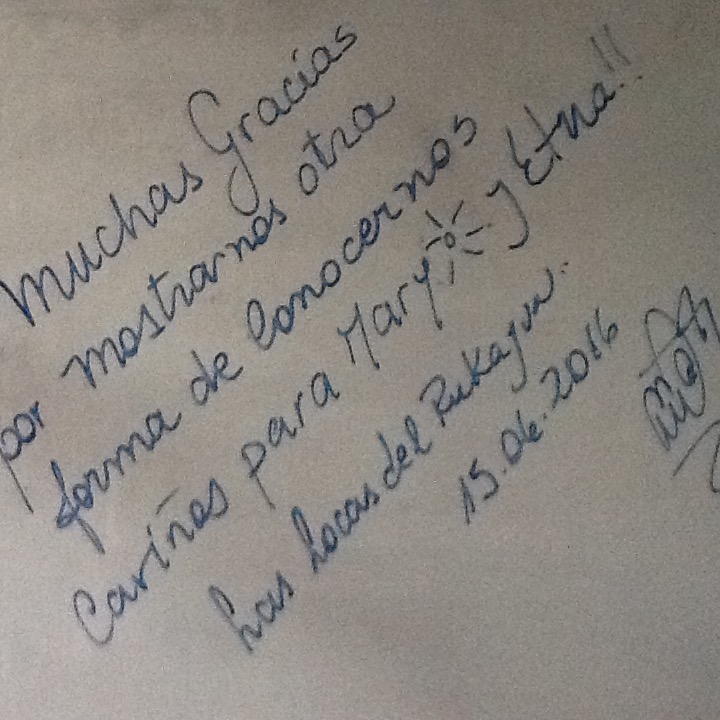 Muchas Gracias
por mostrarnos otra
forma de conocernos
Cariños para Mary y Etna!!
Las Locas del Rukagun.
15.06.2016